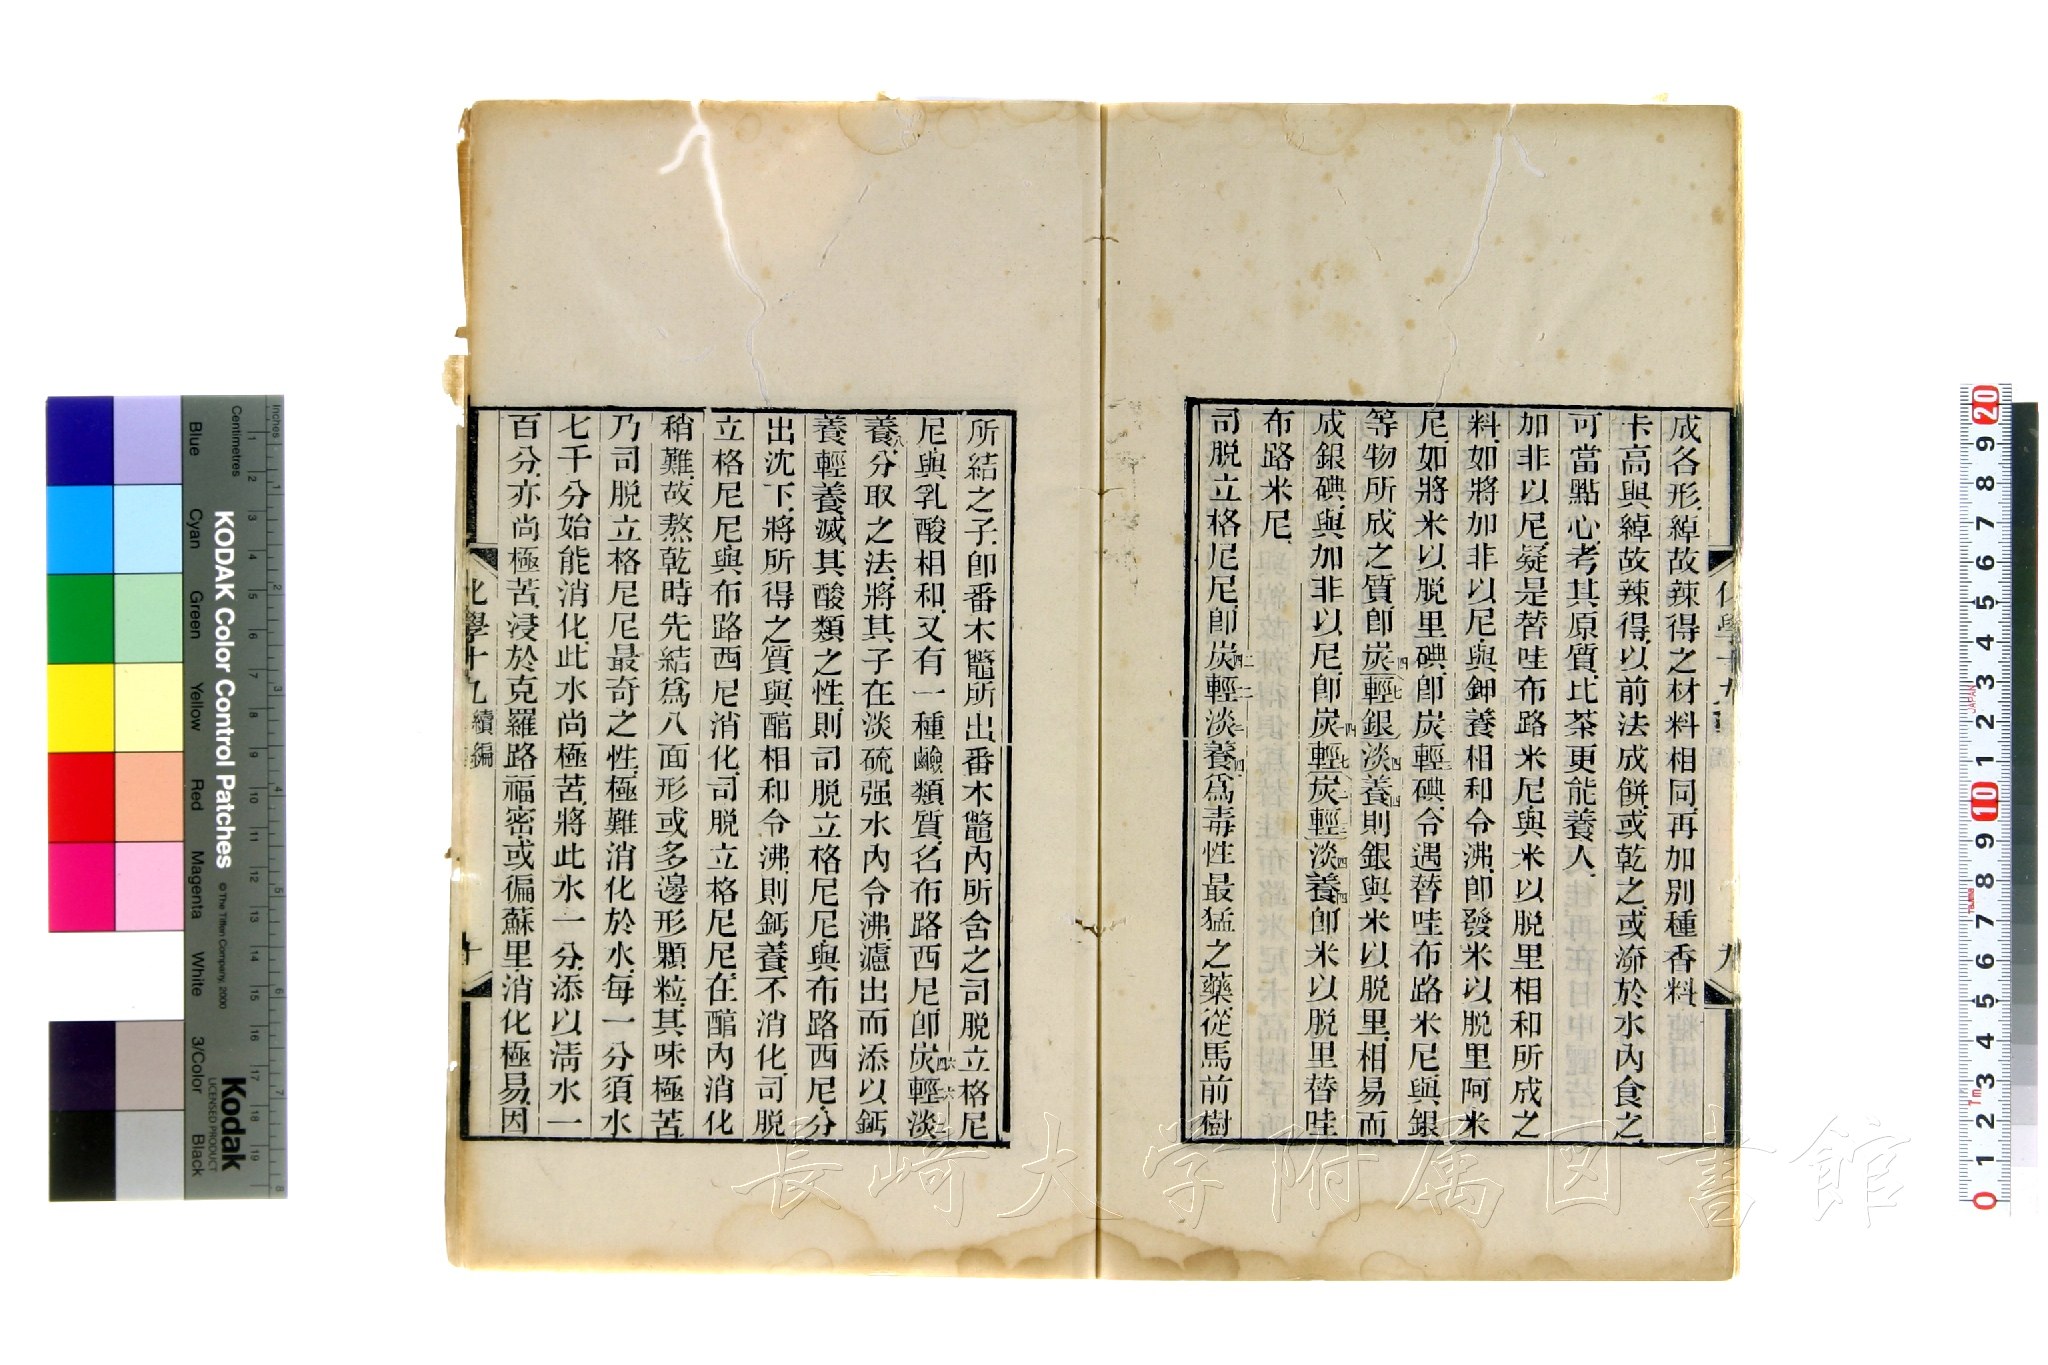 成各形綽故辣得之材料相同再加別種香料
卡高與綽故辣得以前法成餅或乾之或渝於水內食之
可當點心考其原質比茶更能養人
加非以尼疑是替哇布路米尼與米以脱里相和所成之
料如將加非以尼與鉀養相和令沸卽發米以脱里阿米
尼如將米以脱里碘卽炭輕三碘令遇替哇布路米尼與銀
等物所成之質卽炭一四輕七銀淡四養四則銀與米以脱里相易而
成銀碘與加非以尼卽炭一四輕七炭二輕三淡四養四卽米以脱里替哇
布路米尼
司脱立格尼尼卽炭四二輕二二淡二養四爲毒性最猛之藥從馬前樹
化學十九 續編
九
所結之子卽番木鼈所出番木鼈內所含之司脱立格尼
尼與乳酸相和又有一種鹼類質名布路西尼卽炭四六輕二六淡二
養八分取之法將其子在淡硫强水內令沸濾出而添以鈣
養輕養滅其酸類之性則司脱立格尼尼與布路西尼分
出沈下將所得之質與醕相和令沸則鈣養不消化司脱
立格尼尼與布路西尼消化司脱立格尼尼在醕內消化
稍難故熬乾時先結爲八面形或多邊形顆粒其味極苦
乃司脱立格尼尼最奇之性極難消化於水每一分須水
七千分始能消化此水尚極苦將此水一分添以淸水一
百分亦尚極苦浸於克羅路福密或徧蘇里消化極易因
化學十九 續編
十
Inches
Centimetres
KODAK Color Control Patches
© The Tiffen Company, 2000
Kodak
LICENSED PRODUCT
Blue
Cyan
Green
Yellow
Red
Magenta
White
3/Color
Black
長崎大学附属図書館